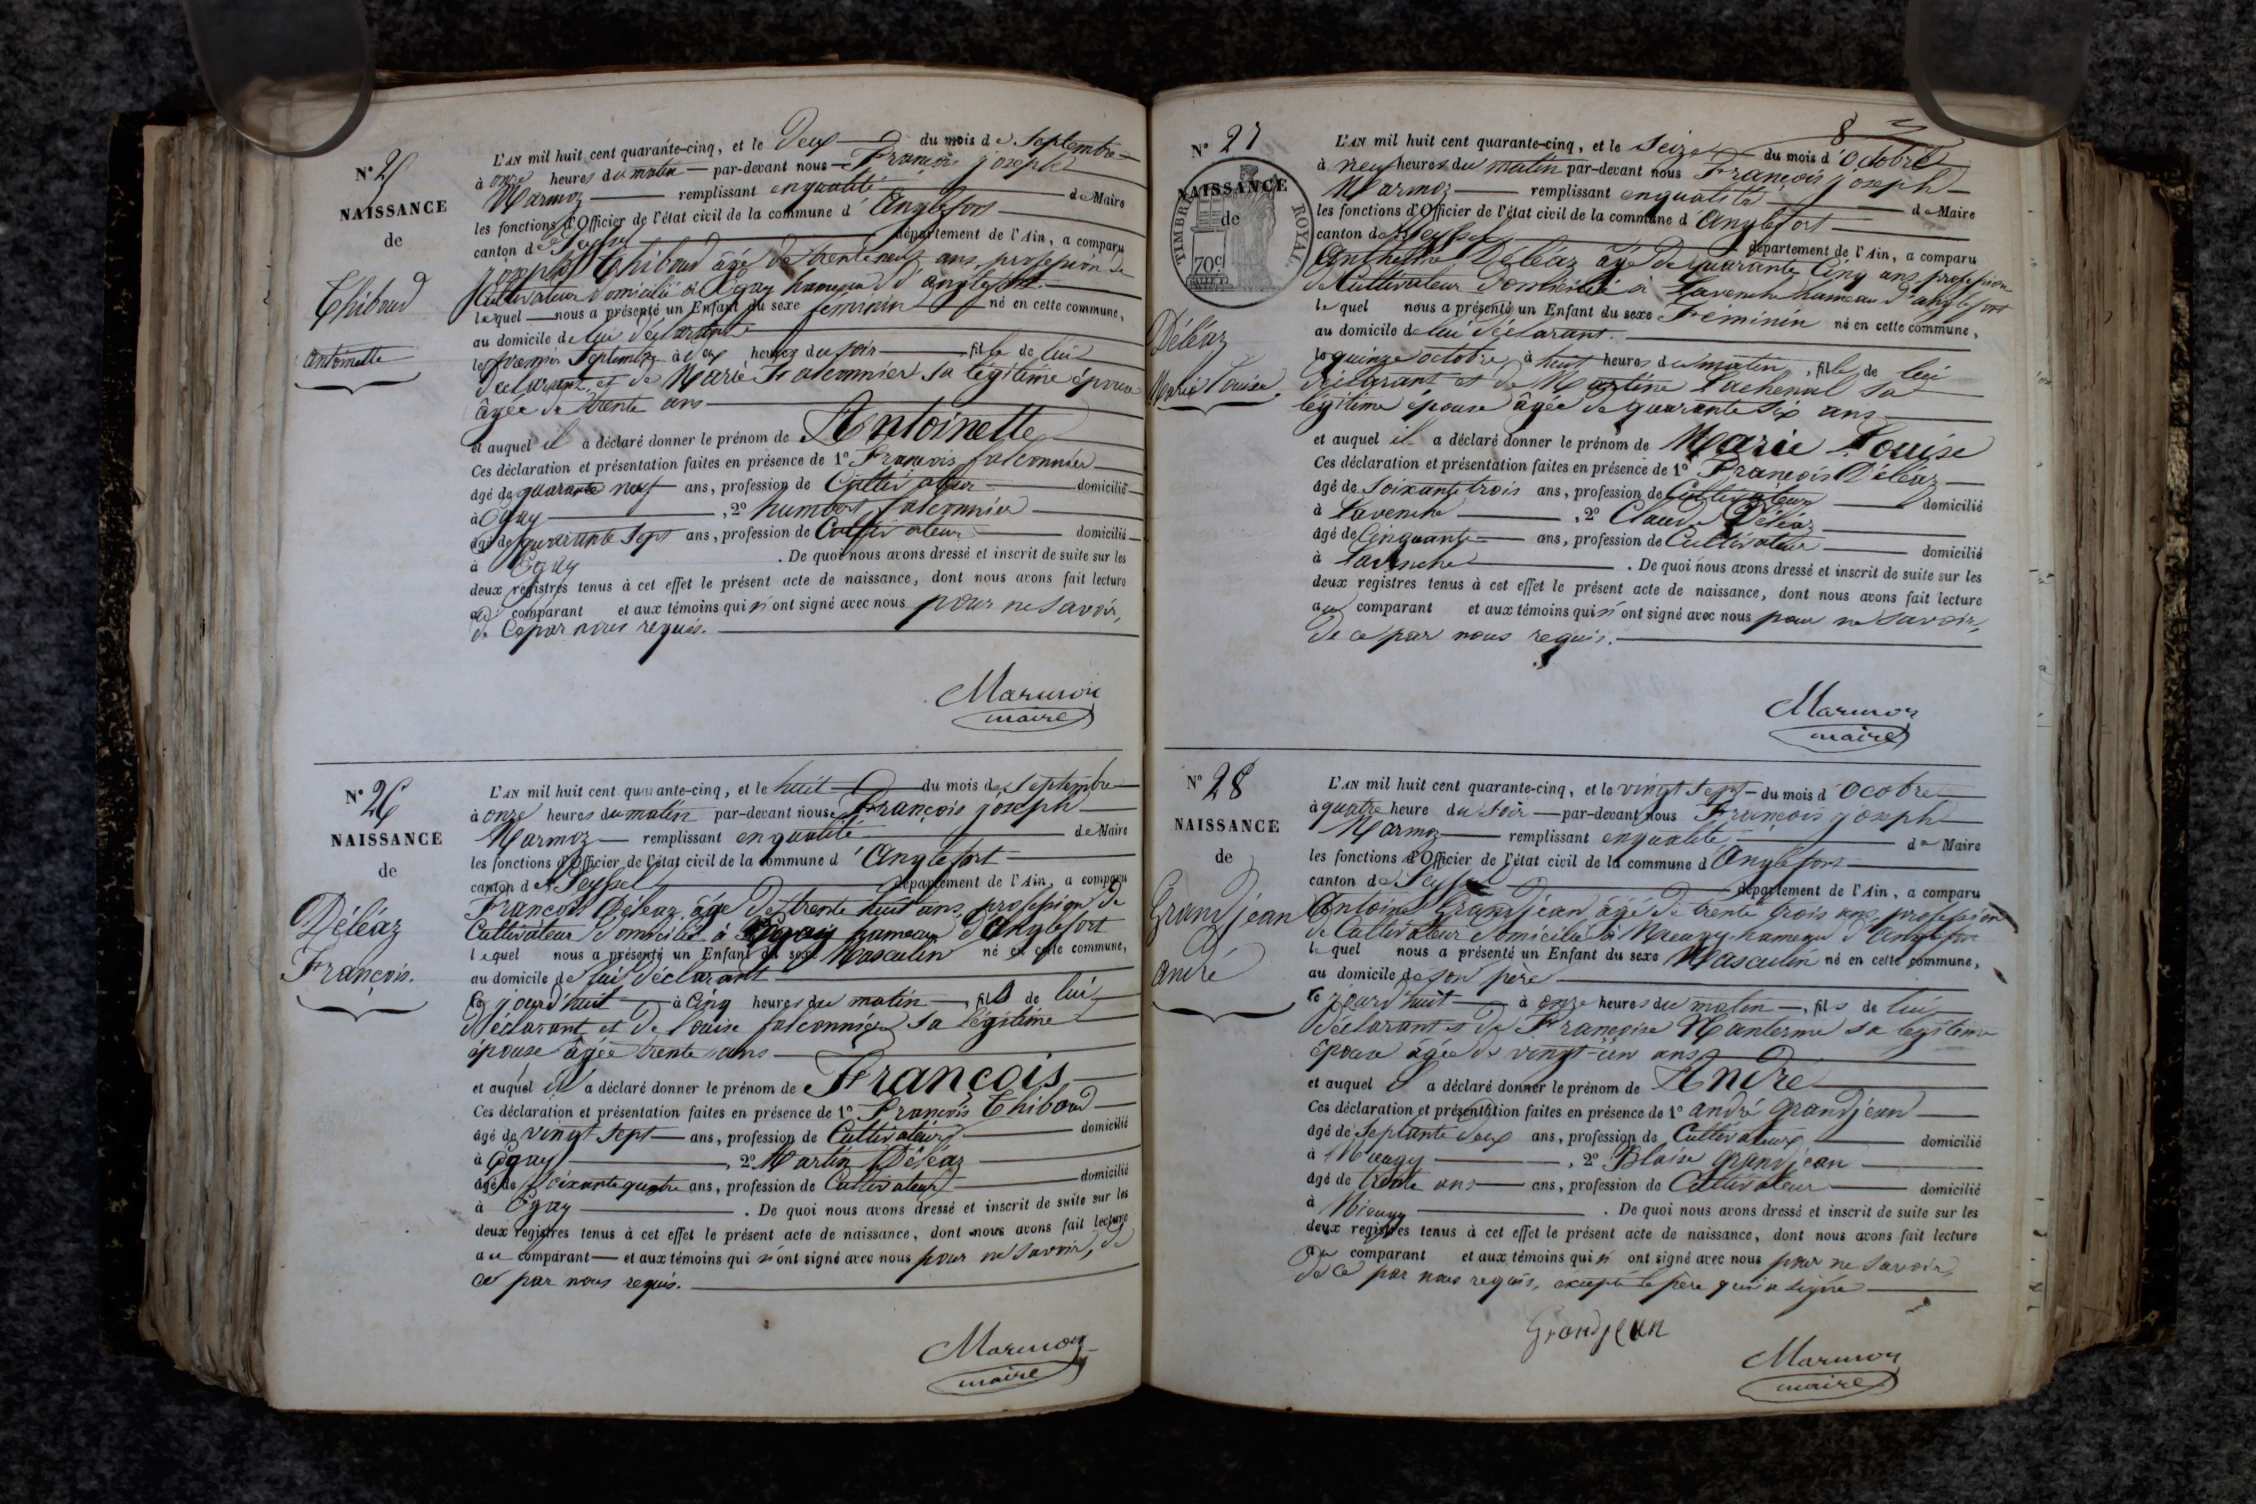 N° 25
NAISSANCE
de
Thiboud
antoinette
L'AN mil huit cent quarante-cinq, et le Deux du mois de Septembre
à onze heures du matin par-devant nous François joseph
Marmoz remplissant en qualité de Maire
les fonctions d'Officier de l'état civil de la commune d'Anglefort
canton de Seyssel département de l'Ain, a comparu
joseph Thiboud âgé de trente neuf ans, profession de
Cultivateur domicilié à Ogay hameau d'anglefort.
lequel nous a présenté un Enfant du sexe feminin né en cette commune,
au domicile de lui déclarant
le premier Septembre à heures du soir fille de lui
déclarant et de Marie falconnier sa légitime épouse
âgée de trente ans
et auquel il a déclaré donner le prénom de Antoinette
Ces déclaration et présentation faites en présence de 1° François falconnier
âgé de quarante neuf ans, profession de Cultivateur domicilié
à Ogay , 2° humbert falconnier
âgé de quarante sept ans, profession de Cultivateur domicilié
à Ogay . De quoi nous avons dressé et inscrit de suite sur les
deux registres tenus à cet effet le présent acte de naissance, dont nous avons fait lecture
au comparant et aux témoins qui n'ont signé avec nous pour ne savoir,
de ce par nous requis.
Marmoz
maire
N° 26
NAISSANCE
de
Déléaz
François.
L'AN mil huit cent quarante-cinq, et le huit du mois de Septembre
à onze heures du matin par-devant nous François joseph
Marmoz remplissant en qualité de Maire
les fonctions d'Officier de l'état civil de la commune d'Anglefort
canton de Seyssel département de l'Ain, a comparu
François Déléaz âgé de trente huit ans, profession de
Cultivateur domicilié à Ogay hameau d'Anglefort
lequel nous a présenté un Enfant du sexe Masculin né en cette commune,
au domicile de lui déclarant
ce jourd'huit à cinq heures du matin, fils de lui
déclarant et de louise falconnier sa légitime
épouse âgée trente ans
et auquel il a déclaré donner le prénom de François
Ces déclaration et présentation faites en présence de 1° François Thiboud
âgé de vingt sept ans, profession de Cultivateur domicilié
à Ogay , 2° Martin Déléaz
âgé de soixante quatre ans, profession de Cultivateur domicilié
à Ogay . De quoi nous avons dressé et inscrit de suite sur les
deux registres tenus à cet effet le présent acte de naissance, dont nous avons fait lecture
au comparant et aux témoins qui n'ont signé avec nous pour ne savoir, de
ce par nous requis.
Marmoz
maire
8
N° 27
NAISSANCE
de
TIMBRE ROYAL
70c
Déléaz
Marie Louise
L'AN mil huit cent quarante-cinq, et le Seize du mois d'Octobre
à neuf heures du matin par-devant nous François joseph
Marmoz remplissant en qualité de Maire
les fonctions d'Officier de l'état civil de la commune d'Anglefort
canton de Seyssel département de l'Ain, a comparu
Anthelme Déléaz âgé de quarante Cinq ans profession
de Cultivateur domicilié à Lavenche hameau d'anglefort
lequel nous a présenté un Enfant du sexe Féminin né en cette commune,
au domicile de lui déclarant.
le quinze octobre à huit heures du matin, fille de lui
déclarant et de Martine Lachenal sa
légitime épouse âgée de quarante six ans
et auquel il a déclaré donner le prénom de Marie Louise
Ces déclaration et présentation faites en présence de 1° François Déléaz
âgé de soixante trois ans, profession de Cultivateur domicilié
à Lavenche , 2° Claude Déléaz
âgé de Cinquante ans, profession de Cultivateur domicilié
à Lavenche . De quoi nous avons dressé et inscrit de suite sur les
deux registres tenus à cet effet le présent acte de naissance, dont nous avons fait lecture
au comparant et aux témoins qui n'ont signé avec nous pour ne savoir,
de ce par nous requis.
Marmoz
maire
N° 28
NAISSANCE
de
Grandjean
André
L'AN mil huit cent quarante-cinq, et le vingt sept du mois d'Ocobre
à quatre heure du soir par-devant nous François joseph
Marmoz remplissant en qualité de Maire
les fonctions d'Officier de l'état civil de la commune d'Anglefort
canton de Seyssel département de l'Ain, a comparu
Antoine Grandjean âgé de trente trois ans, profession
de Cultivateur domicilié à hameau d'Anglefort
lequel nous a présenté un Enfant du sexe Masculin né en cette commune,
au domicile de son père
ce jourd'huit à onze heures du matin, fils de lui
déclarant et de Françoise sa legitime
épouse âgée de vingt-un ans
et auquel il a déclaré donner le prénom de André
Ces déclaration et présentation faites en présence de 1° andré grandjean
âgé de septante deux ans, profession de Cultivateur domicilié
à , 2° Blaise grandjean
âgé de trente ans ans, profession de Cultivateur domicilié
à . De quoi nous avons dressé et inscrit de suite sur les
deux registres tenus à cet effet le présent acte de naissance, dont nous avons fait lecture
au comparant et aux témoins qui n'ont signé avec nous pour ne savoir,
de ce par nous requis, excepté le père qui a signé
Grandjean
Marmoz
maire